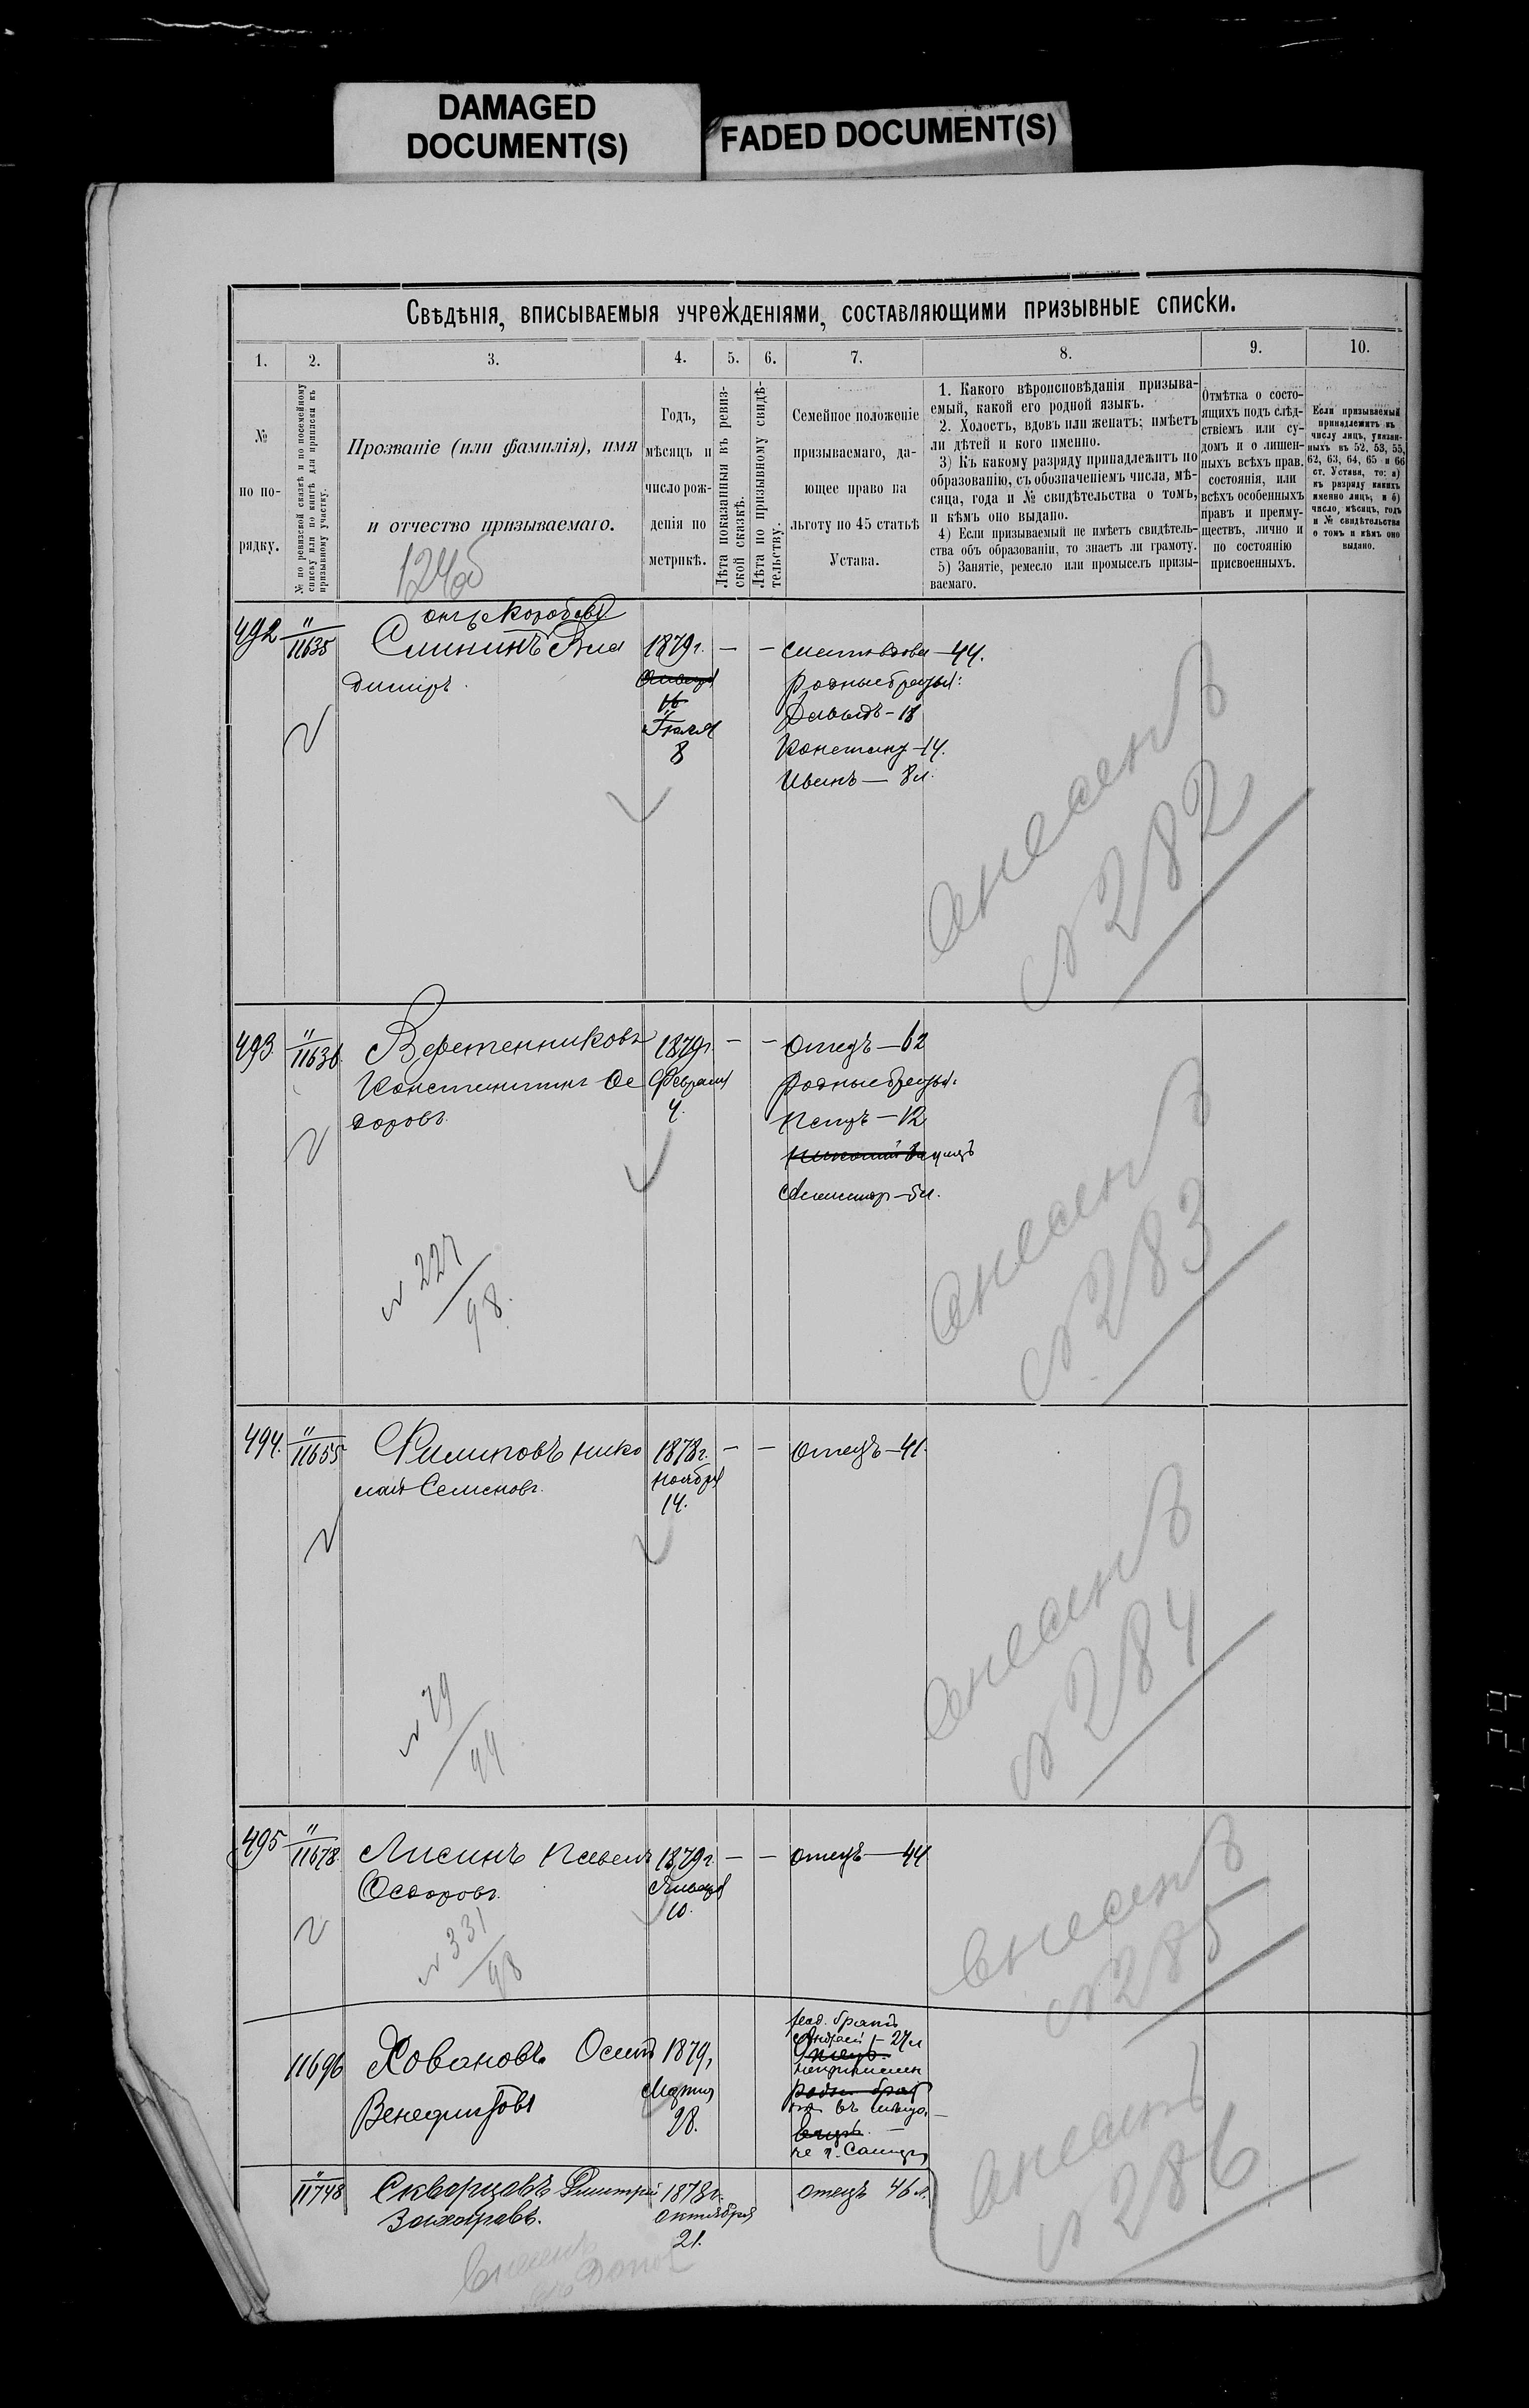 DAMAGED
DOCUMENT(S)
FADED DOCUMENT(S)
Свѣдѣнія, вписываемыя учрежденіями, составляющими призывные списки.
1. 2. 3. 4. 5. 6. 7. 8. 9. 10.
№
по по-
рядку.
№ по ревизской сказкѣ и по посемейному
списку или по книгѣ для приписки къ
призывному участку.
Прозваніе (или фамилія), имя
и отчество призываемаго.
Годъ,
мѣсяцъ и
число рож-
денія по
метрикѣ.
Лѣта показанныя въ ревиз-
ской сказкѣ.
Лѣта по призывному свидѣ-
тельству.
Семейное положеніе
призываемаго, да-
ющее право на
льготу по 45 статьѣ
Устава.
1. Какого вѣроисповѣданія призыва-
емый, какой его родной языкъ.
2. Холостъ, вдовъ или женатъ; имѣетъ
ли дѣтей и кого именно.
3) Къ какому разряду принадлежитъ по
образованію, съ обозначеніемъ числа, мѣ-
сяца, года и № свидѣтельства о томъ,
и кѣмъ оно выдано.
4) Если призываемый не имѣетъ свидѣтель-
ства объ образованіи, то знаетъ ли грамоту.
5) Занятіе, ремесло или промыселъ призы-
ваемаго.
Отмѣтка о состо-
ящихъ подъ слѣд-
ствіемъ или су-
домъ и о лишен-
ныхъ всѣхъ прав.
состоянія, или
всѣхъ особенныхъ
правъ и преиму-
ществъ, лично и
по состоянію
присвоенныхъ.
Если призываемый
принадлежитъ къ
числу лицъ, указан-
ныхъ въ 52, 53, 55,
62, 63, 64, 65 и 66
ст. Устава, то: а)
къ разряду какихъ
именно лицъ, и б)
число, мѣсяцъ, годъ
и № свидѣтельства
о томъ и кѣмъ оно
выдано.
492 " 11635 1879г. — — мать вдова — 44.
димиръ Января родные братья:
16 Давыдъ — 18
8 Констант — 14.
Иванъ — 8 л.
внесенъ
№ 282
493. " 11636. Веретенниковъ 1879г. — — отецъ — 62
Константинъ Ѳе Февраля родные братья:
доровъ 4. Петръ — 12
Александр — 5 л.
№ 227
98.
внесенъ
№ 283
494. " 11655 Филиповъ Нико 1878г. — — отецъ — 41.
лай Семеновъ. Ноября
14.
№ 79
99
внесенъ
№ 284
495 " 11678. Лисинъ Павелъ 1879г. — — отецъ — 44
Ѳедоровъ. Января
10.
№ 331
98
внесенъ
№ 285
11696 Ховановъ Осипъ 1879,
Венедиктовъ Марта
28.
род. братъ
Андрей — 27 л
11748 Скварцовъ Дмитрій 1878г. отецъ 46 л.
Захаровъ. Октября
21.
внесенъ
№ 286
629